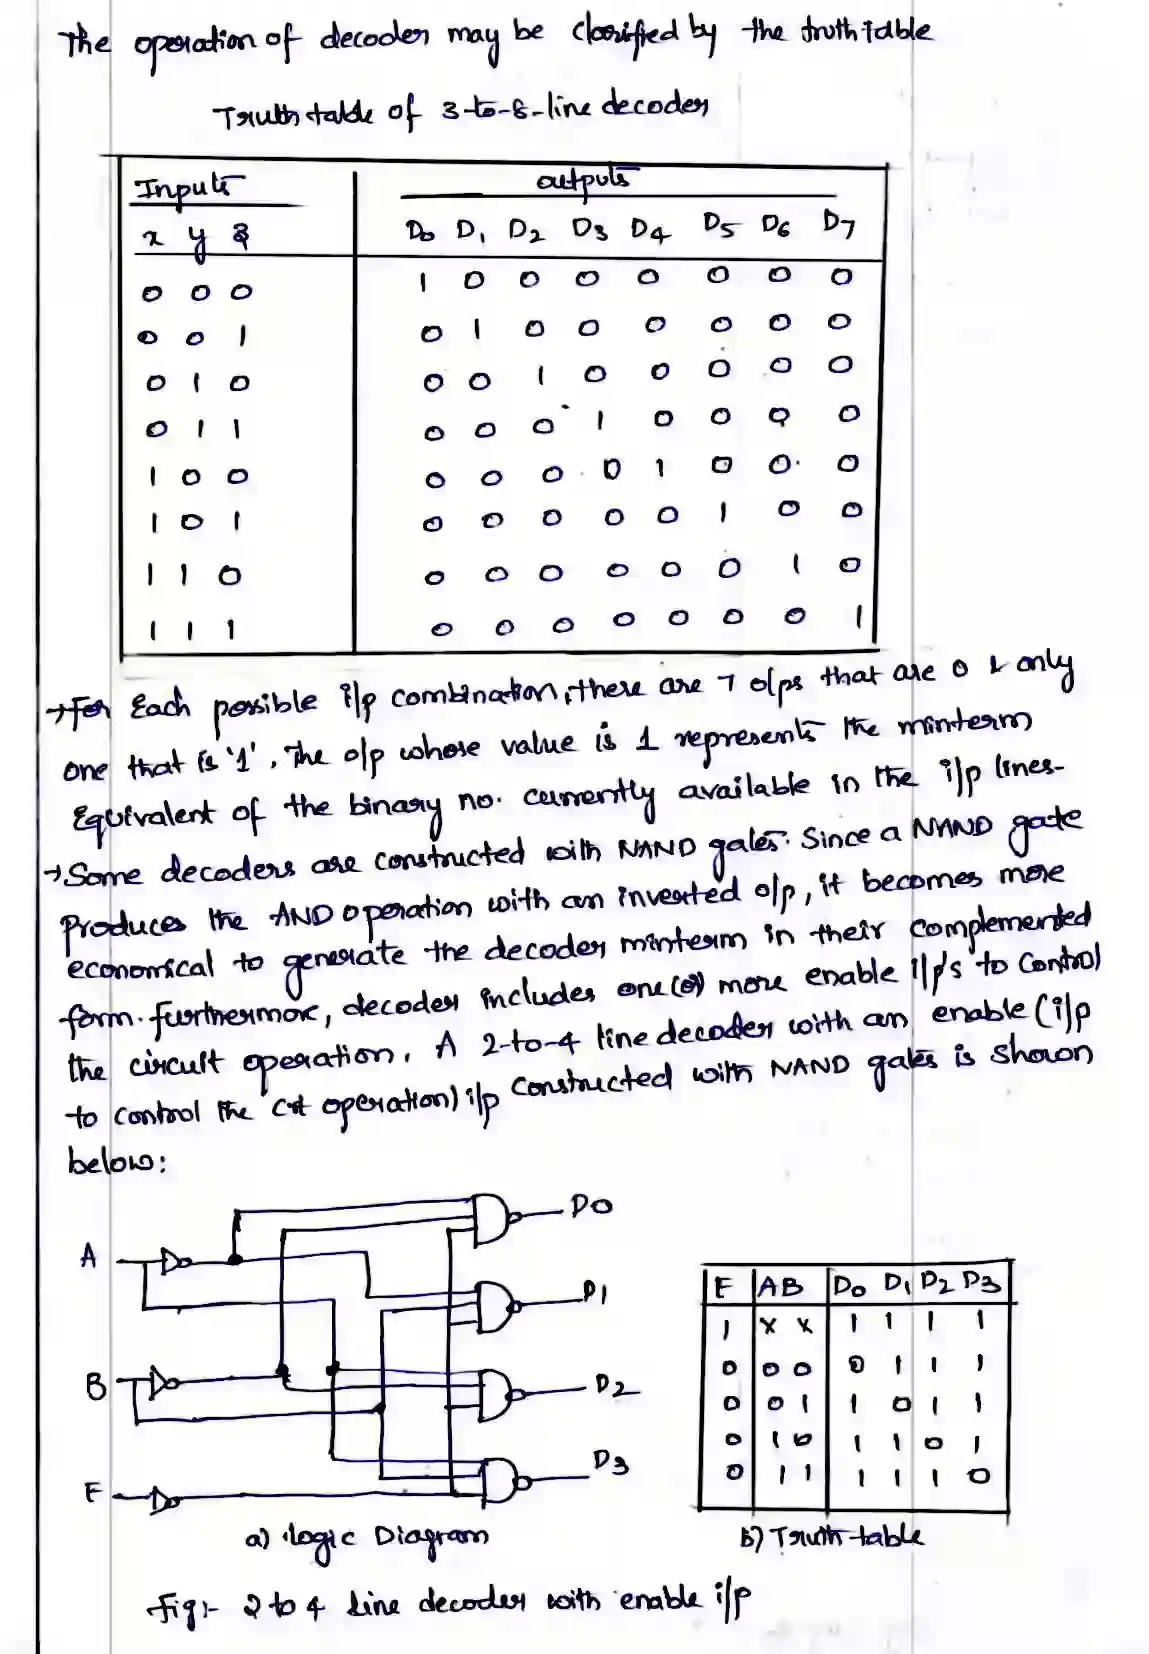 The operation of decoder may be clarified by the truth table
Truth table of 3-to-8-line decoder
Inputs outputs
x y z D0 D1 D2 D3 D4 D5 D6 D7
0 0 0 1 0 0 0 0 0 0 0
0 0 1 0 1 0 0 0 0 0 0
0 1 0 0 0 1 0 0 0 0 0
0 1 1 0 0 0 1 0 0 0 0
1 0 0 0 0 0 0 1 0 0 0
1 0 1 0 0 0 0 0 1 0 0
1 1 0 0 0 0 0 0 0 1 0
1 1 1 0 0 0 0 0 0 0 1
→For Each possible i/p combination, there are 7 o/ps that are 0 & only
one that is '1', The o/p whose value is 1 represents the minterm
Equivalent of the binary no. currently available in the i/p lines-
→Some decoders are constructed with NAND gates. Since a NAND gate
produces the AND operation with an inverted o/p, it becomes more
economical to generate the decoder minterm in their complemented
form. furthermore, decoder includes one (or) more enable i/p's to control
the circuit operation. A 2-to-4 line decoder with an enable (i/p
to control the ckt operation) i/p constructed with NAND gates is shown
below:
A
B
E
D0
D1
D2
D3
a) logic Diagram
E A B D0 D1 D2 D3
1 x x 1 1 1 1
0 0 0 0 1 1 1
0 0 1 1 0 1 1
0 1 0 1 1 0 1
0 1 1 1 1 1 0
b) Truth table
fig:- 2 to 4 line decoder with enable i/p